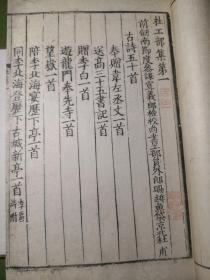 杜工部集第一
前劍南節度叅謀宣義郎檢校尚書工部員外郎賜緋魚袋京兆杜 甫
古詩五十首
奉贈韋左丞文一首
送高三十五書記一首
贈李白一首
遊龍門奉先寺一首
望嶽一首
陪李北海宴歷下亭一首
同李北海登歷下古城新亭一首